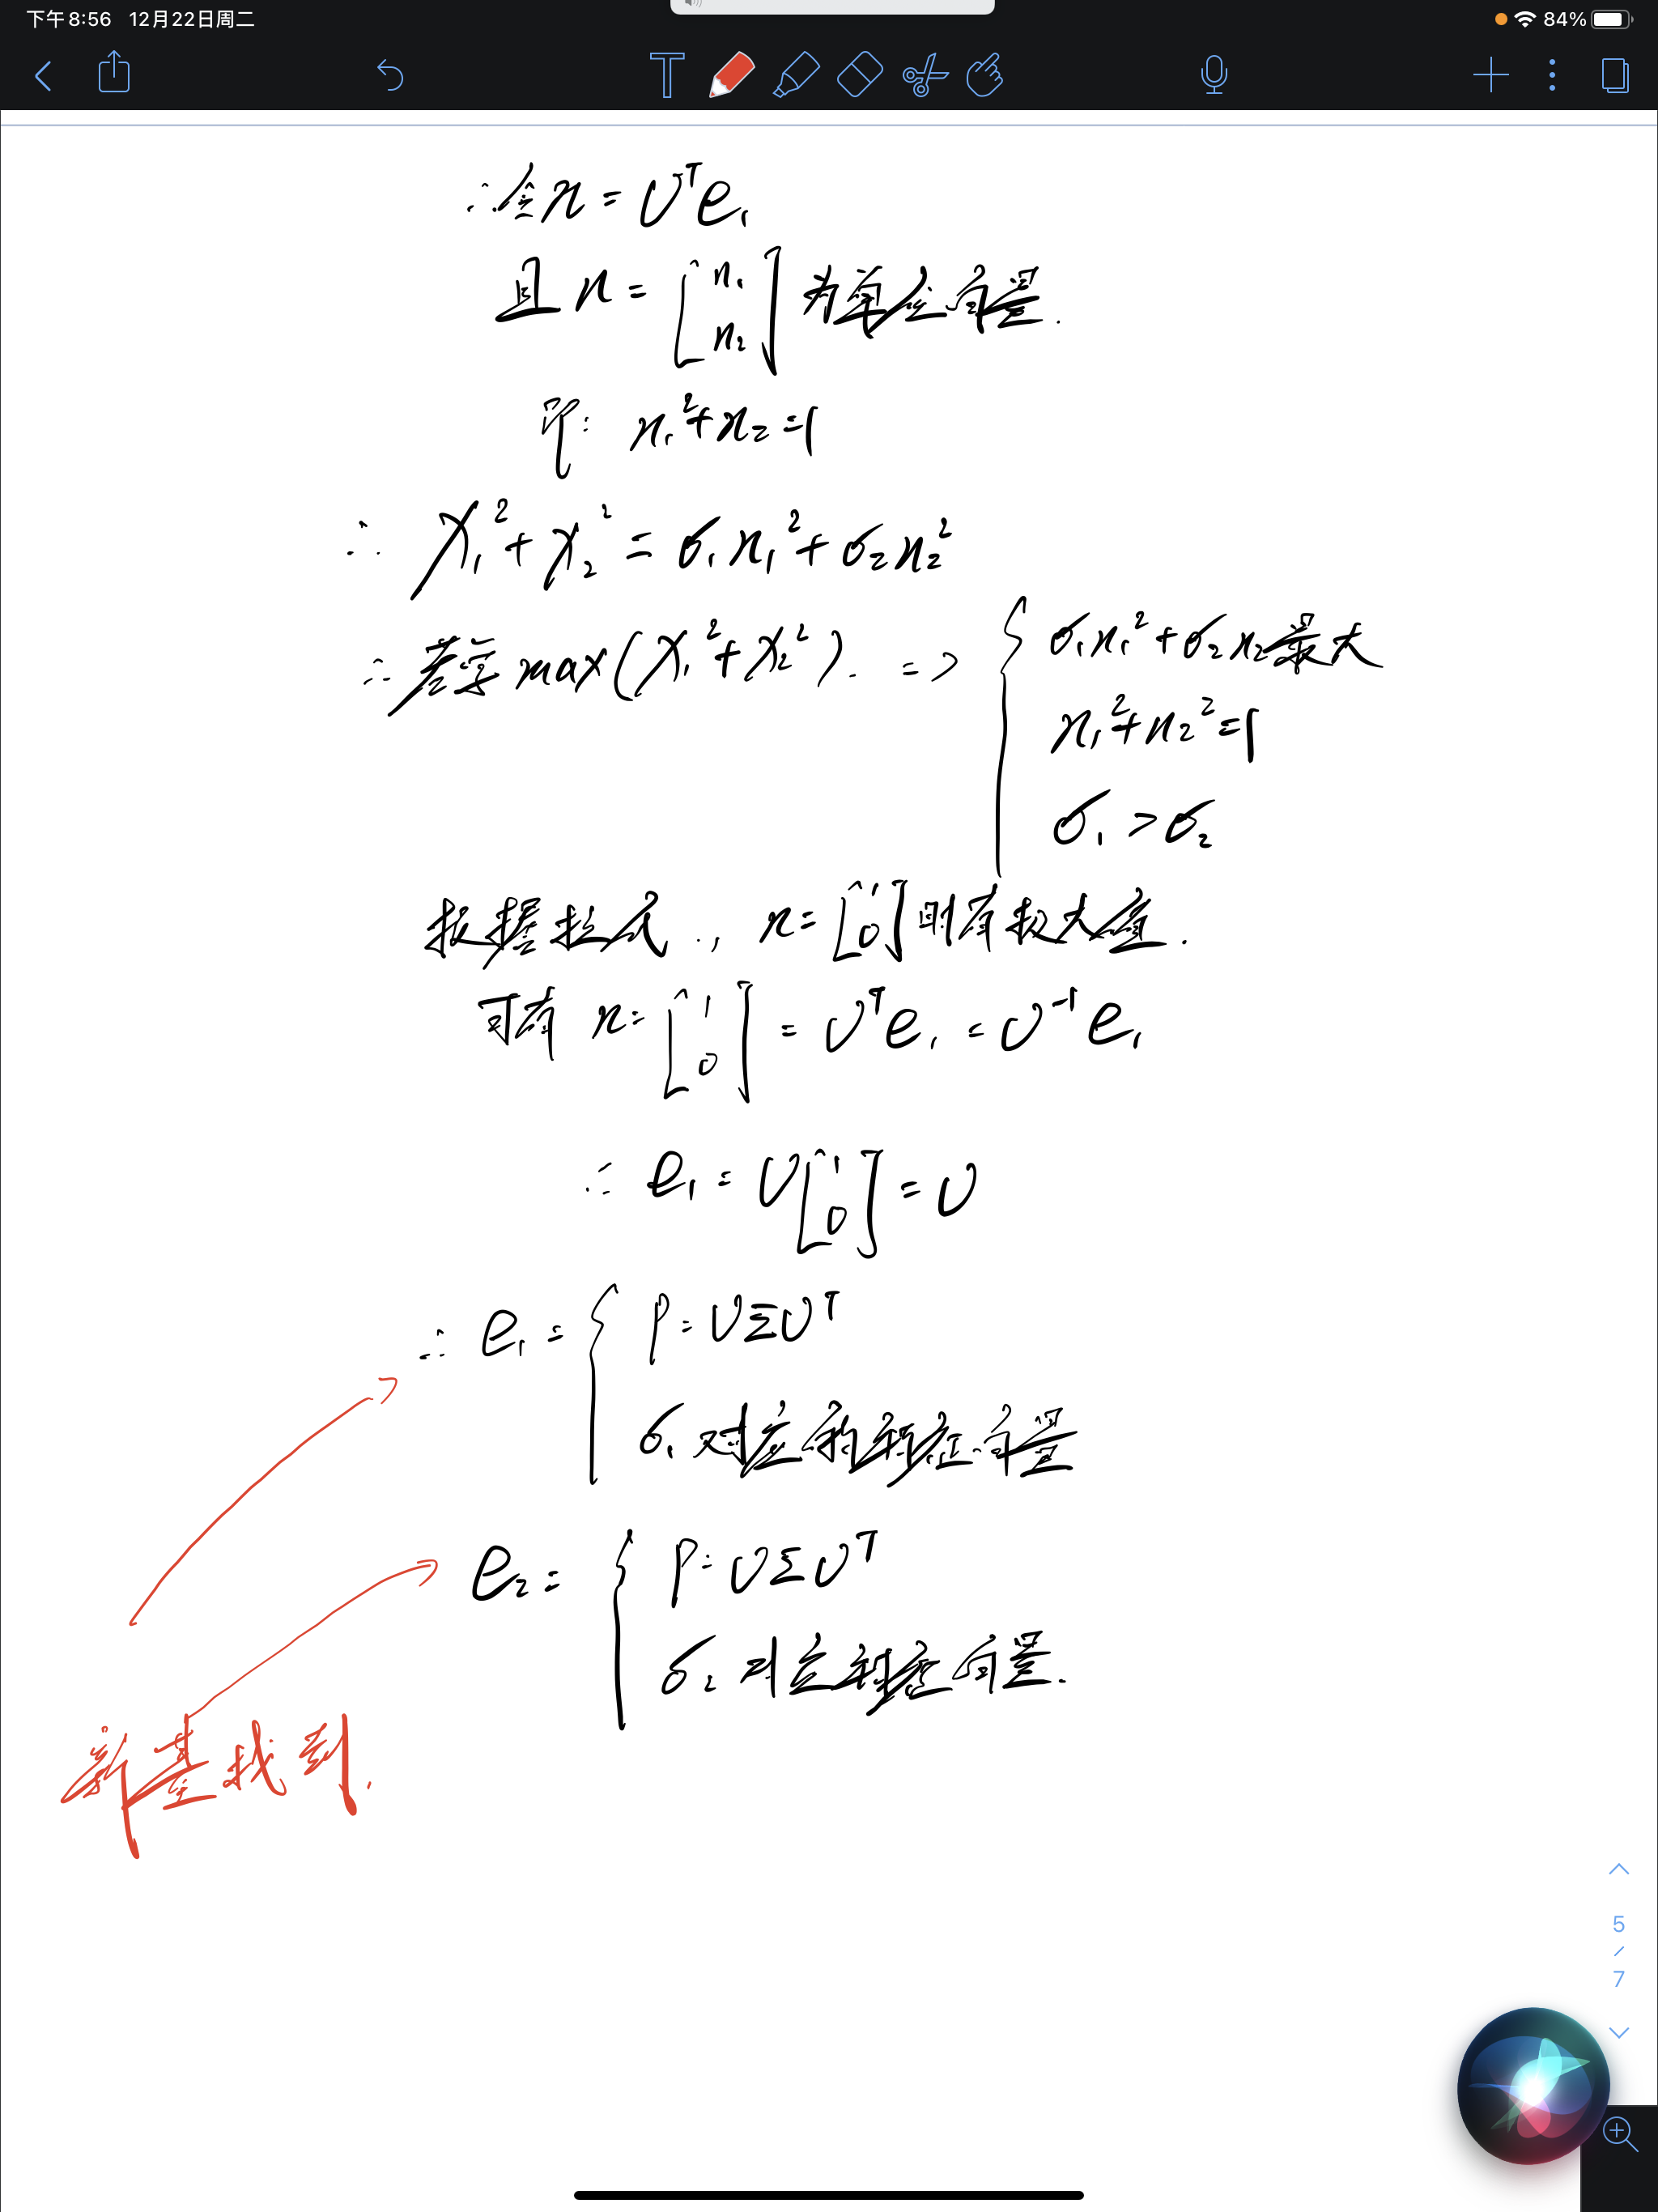 下午8:56 12月22日周二
84%
∴令n=Uᵀe₁
且 n=[n₁ n₂]为单位向量.
即: n₁²+n₂=1
∴ X₁²+X₂²=σ₁n₁²+σ₂n₂²
∴若要max(X₁²+X₂²). => { σ₁n₁²+σ₂n₂最大
n₁²+n₂²=1
σ₁>σ₂
根据拉式, n=[1 0]则有极大值.
可有 n=[1 0]=Uᵀe₁=U⁻¹e₁
∴ e₁=U[1 0]=U
∴ e₁={ P=UΣUᵀ
σ₁对应的特征向量
e₂={ P=UΣUᵀ
σ₂对应特征向量.
新基找到.
5
/
7